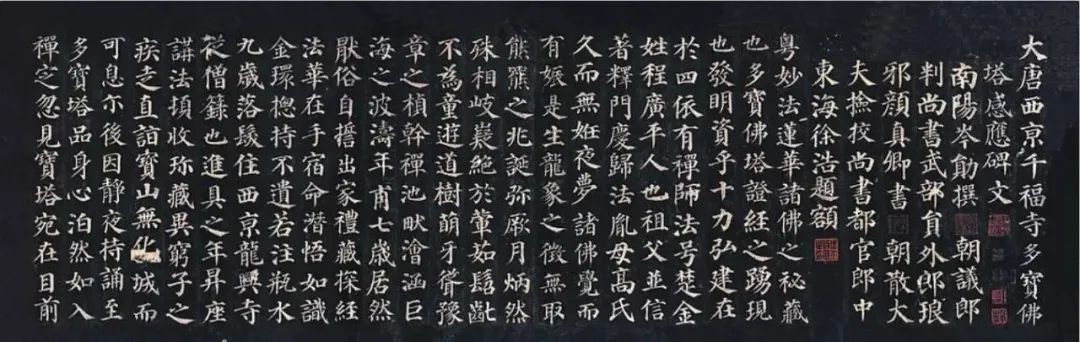 大唐西京千福寺多寶佛
塔感應碑文
南陽岑勛撰　朝議郎
判尚書武部員外郎琅
邪顏真卿書　朝散大
夫撿挍尚書都官郎中
東海徐浩題額
粵妙法蓮華諸佛之秘藏
也多寶佛塔證經之踴現
也發明資乎十力弘建在
於四依有禪師法号楚金
姓程廣平人也祖父並信
著釋門慶歸法胤母高氏
久而無姙夜夢諸佛覺而
有娠是生龍象之徵無取
熊羆之兆誕弥厥月炳然
殊相岐嶷絕於葷茹髫齔
不為童遊道樹萌牙聳豫
章之楨幹禪池畎澮涵巨
海之波濤年甫七歲居然
猒俗自擔出家禮藏探經
法華在手宿命潛悟如識
金環揔持不遺若注瓶水
九歲落髮住西京龍興寺
從僧籙也進具之年昇座
講法頃收珍藏異窮子之
疾走直詣寶山無化城而
可息尓後因靜夜持誦至
多寶塔品身心泊然如入
禪㝎忽見寶塔宛在目前